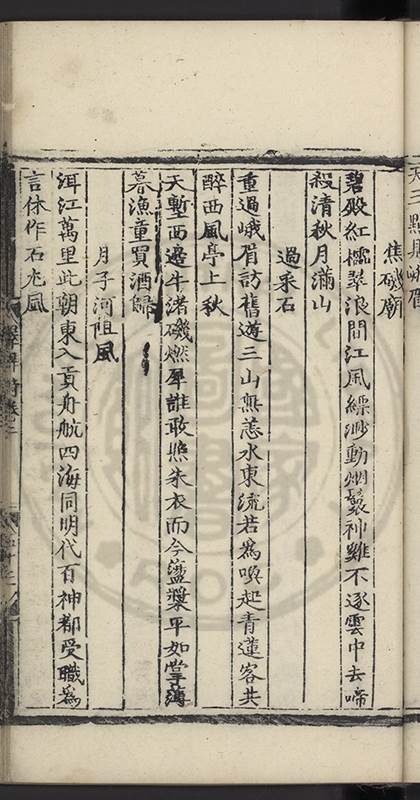 焦磯廟
碧殿紅櫺翠浪間江風縹渺動烟鬟神雞不逐雲中去啼
殺清秋月滿山
過采石
重過峨眉訪舊遊三山無恙水東流若為喚起青蓮客共
醉西風亭上秋
天塹西邊牛渚磯燃犀誰敢照朱衣而今盪槳平如掌薄
暮漁童買酒歸
月子河阻風
洱江萬里此朝東入貢舟航四海同明代百神都受職為
言休作石尤風